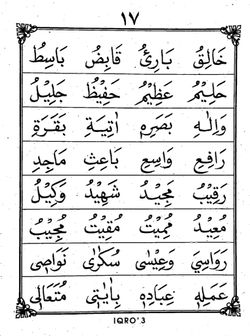 ١٧
خَالِقُ بَارِئُ قَابِضُ بَاسِطُ
حَلِيْمُ عَظِيْمُ حَفِيْظُ جَلِيْلُ
وَاِلٰهِ بَصَرِهٖ اٰتِيَةِ بَقَرَةِ
رَافِعِ وَاسِعِ بَاعِثِ مَاجِدِ
رَقِيْبُ مَجِيْدُ شَهِيْدُ وَكِيْلُ
مُعِيْدُ مُمِيْتُ مُقِيْتُ مُجِيْبُ
رَوَاسِيَ وَعِيْسٰى سُكٰرٰى نَوَاصِى
عَمَلِهٖ عِبَادِهٖ بِاٰيٰتِيْ مُتَعَالِى
IQRO'3